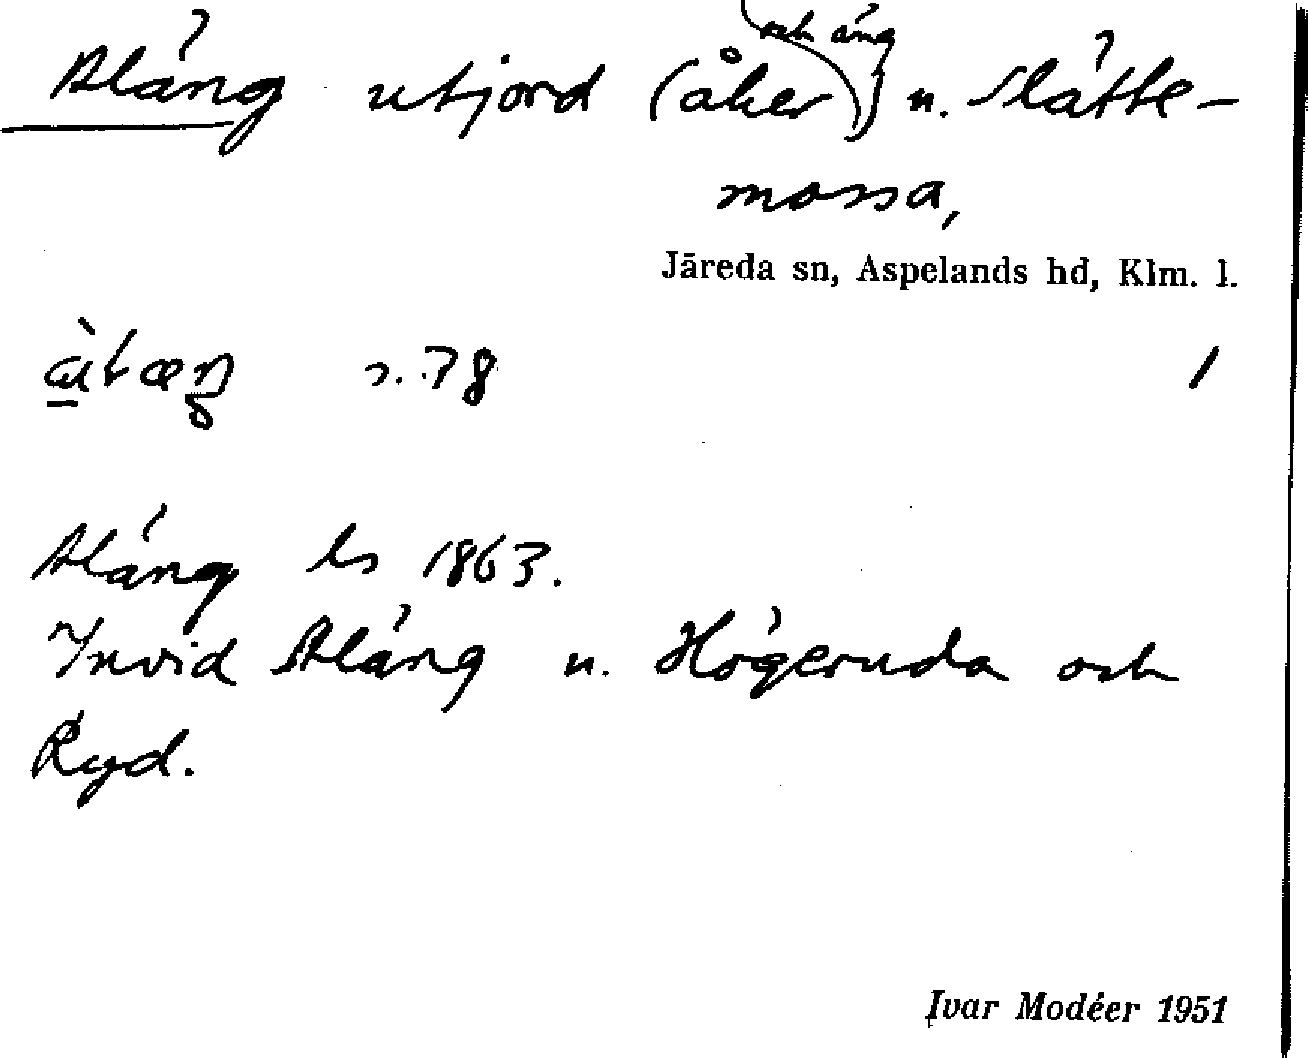 Aläng utjord (åker och äng) u. Slätte-
mossa,
Järeda sn, Aspelands hd, Klm. l.
s. 78 1
Aläng ls 1863.
Invid Aläng u. Högeruda och
Ryd.
Ivar Modéer 1951